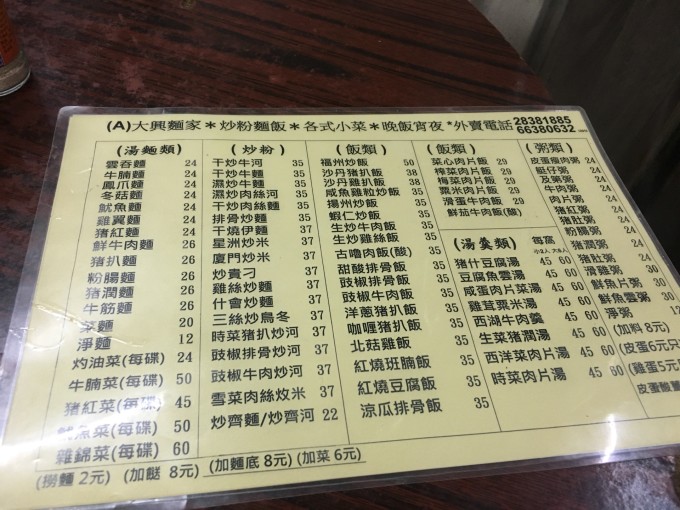 (A)大興麵家＊炒粉麵飯＊各式小菜＊晚飯宵夜*外賣電話 28381885
66380632
(湯麵類)
雲吞麵 24
牛腩麵 24
鳳爪麵 24
冬菇麵 24
魷魚麵 24
雞翼麵 24
猪紅麵 24
鮮牛肉麵 26
猪扒麵 26
粉腸麵 26
猪潤麵 26
牛筋麵 26
菜麵 20
淨麵 12
灼油菜(每碟) 24
牛腩菜(每碟) 50
猪紅菜(每碟) 45
魷魚菜(每碟) 50
雜錦菜(每碟) 60
(炒粉)
干炒牛河 35
干炒牛麵 35
濕炒牛河 35
濕炒肉絲河 35
干炒肉絲麵 35
排骨炒麵 35
干燒伊麵 37
星洲炒米 37
廈門炒米 37
炒貴刁 37
雞絲炒麵 37
什會炒麵 37
三絲炒烏冬 37
時菜猪扒炒河 37
豉椒排骨炒河 37
豉椒牛肉炒河 37
雪菜肉絲炆米 37
炒齋麵/炒齋河 22
(飯類)
福州炒飯 50
沙丹猪扒飯 38
沙丹雞扒飯 38
咸魚雞粒炒飯 35
揚州炒飯 35
蝦仁炒飯 35
生炒牛肉飯 35
生炒雞絲飯 35
古嚕肉飯(酸) 35
甜酸排骨飯 35
豉椒排骨飯 35
豉椒牛肉飯 35
洋蔥猪扒飯 35
咖喱猪扒飯 35
北菇雞飯 35
紅燒班腩飯 35
紅燒豆腐飯 35
涼瓜排骨飯 35
(飯類)
菜心肉片飯 29
榨菜肉片飯 29
梅菜肉片飯 29
粟米肉片飯 29
滑蛋牛肉飯 29
鮮茄牛肉飯(酸)
(湯羹類) 每窩
猪什豆腐湯 45 60
豆腐魚雲湯 45 60
咸蛋肉片菜湯 45 60
雞茸粟米湯 45 60
西湖牛肉羹 45 60
生菜猪潤湯 45 60
西洋菜肉片湯 45 60
時菜肉片湯 45 60
(粥類)
皮蛋瘦肉粥 24
艇仔粥 24
及第粥 24
牛肉粥 24
肉片粥 24
猪紅粥 24
猪肚粥 24
粉腸粥 24
猪潤粥 24
滑雞粥 30
鮮魚片粥 30
鮮魚雲粥 30
淨粥 12
(加料 8元)
(皮蛋 6元
(雞蛋 5元
皮蛋酸薑
(撈麵 2元) (加餸 8元) (加麵底 8元) (加菜 6元)